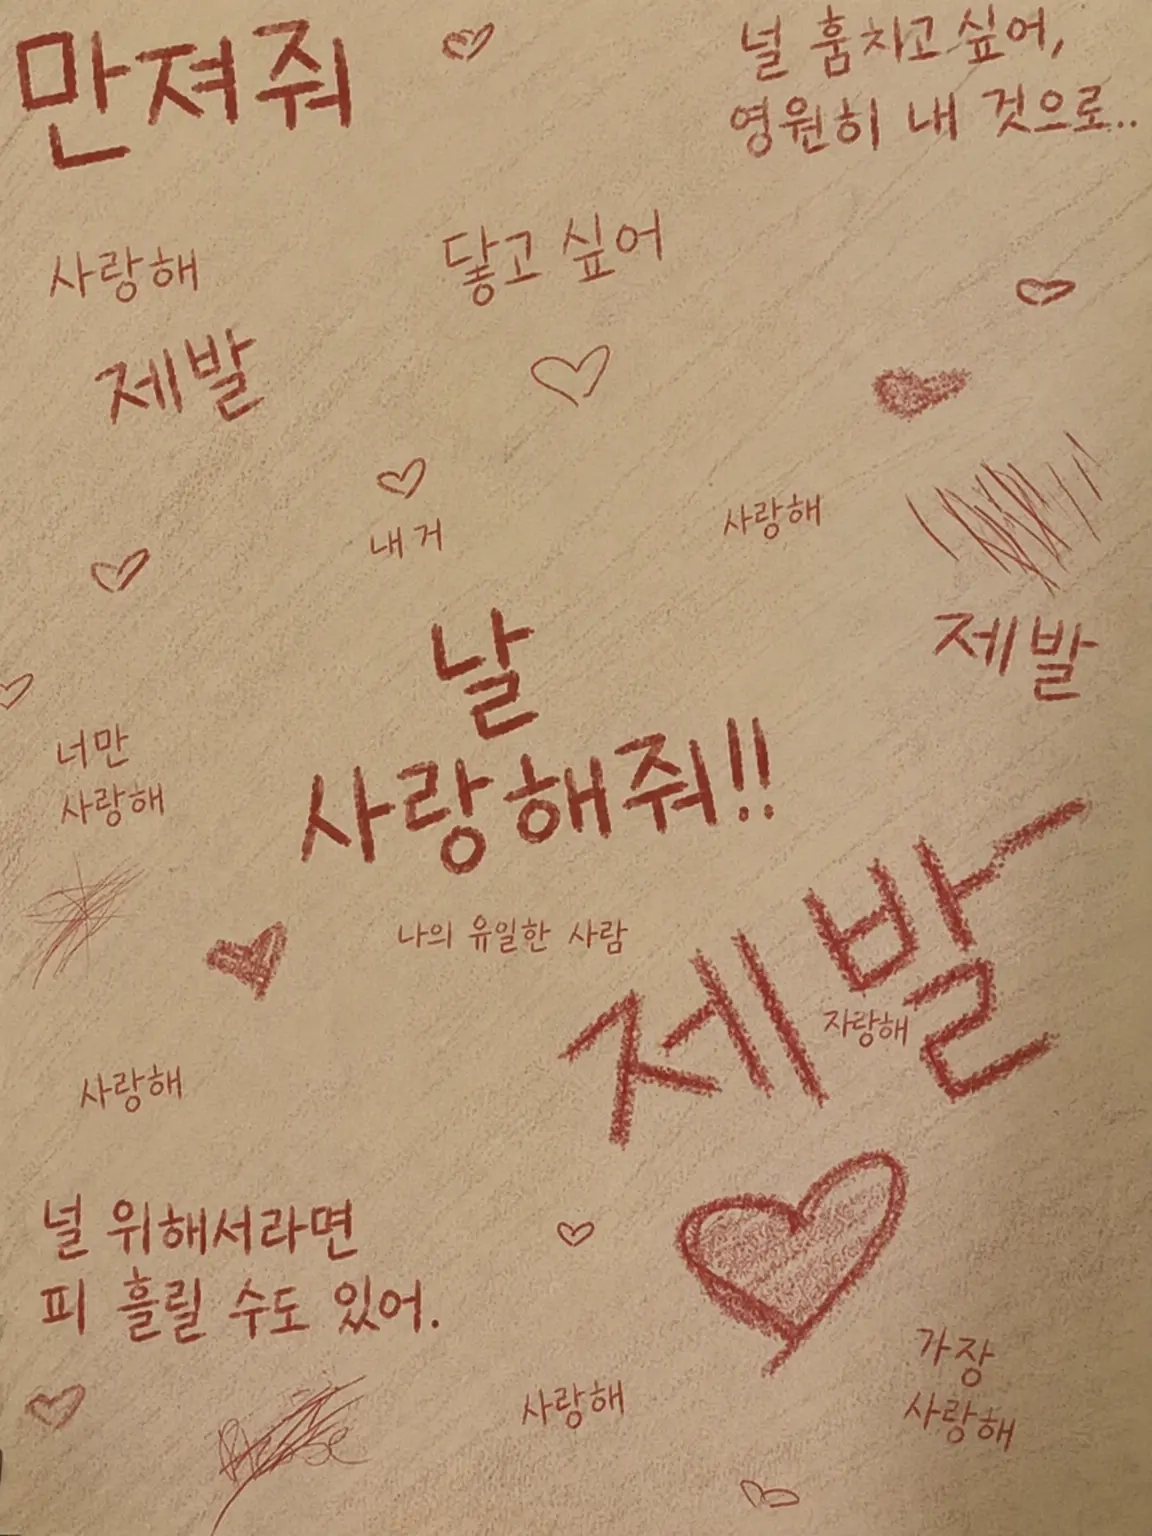 만져줘
널 훔치고싶어,
영원히 내 것으로..
사랑해
닿고 싶어
제발
내 거
사랑해
제발
날
사랑해줘!!
너만
사랑해
나의 유일한 사람
제발
사랑해
사랑해
널 위해서라면
피 흘릴 수도 있어.
가장
사랑해
사랑해